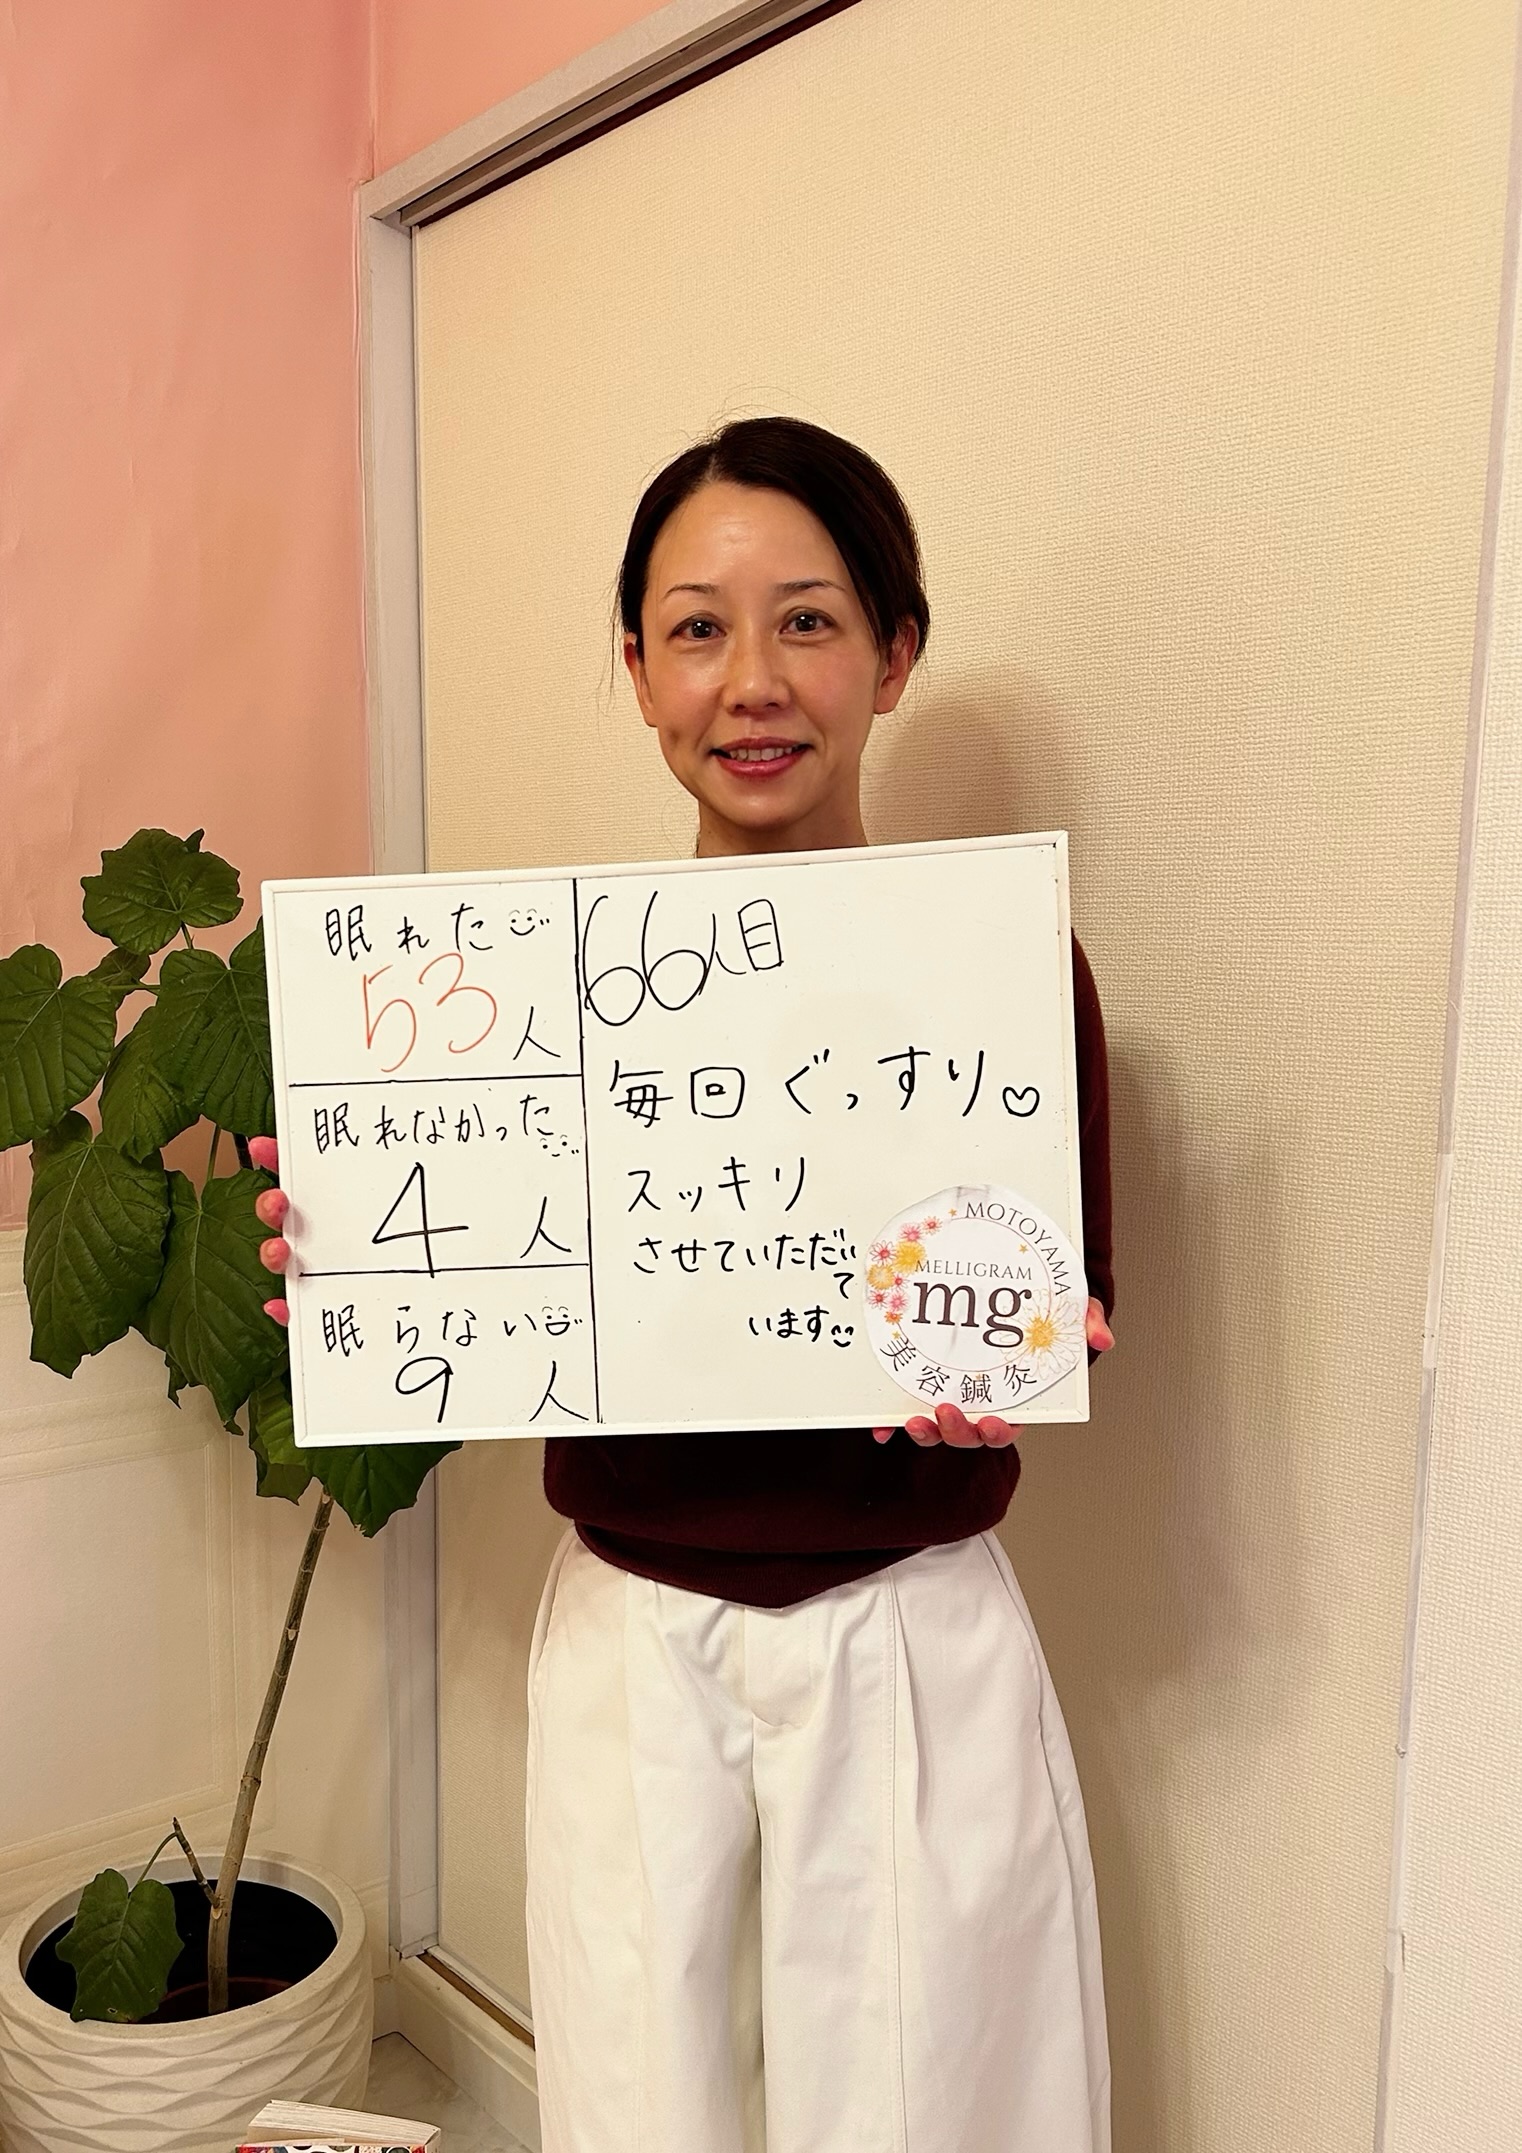 眠れた
53人
眠れなかった
4人
眠らない
9人
66人目
毎回ぐっすり♡
スッキリ
させていただいて
います
MOTOYAMA
MELLIGRAM
mg
美容鍼灸